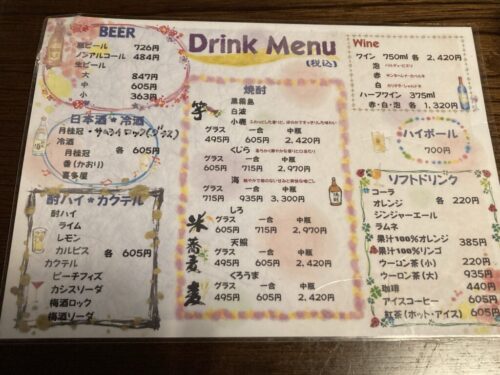 Drink Menu
(税込)
BEER
瓶ビール 726円
ノンアルコール 484円
生ビール
大 847円
中 605円
小 363円
日本酒★冷酒
月桂冠
冷酒 各 605円
月桂冠
香(かおり)
喜多屋
酎ハイ★カクテル
酎ハイ
ライム
レモン
カルピス 各 605円
カクテル
ピーチフィズ
カシスソーダ
梅酒ロック
梅酒ソーダ
焼酎
芋
黒霧島
白波
小鹿
グラス 一合 中瓶
495円 605円 2,420円
くじら
グラス 一合 中瓶
605円 715円 2,970円
海
グラス 一合 中瓶
715円 935円 3,300円
米
しろ
グラス 一合 中瓶
605円 715円 2,970円
蕎麦
天照
グラス 一合 中瓶
495円 605円 2,420円
麦
くろうま
グラス 一合 中瓶
495円 605円 2,420円
Wine
ワイン 750ml 各 2,420円
泡
赤
白
ハーフワイン 375ml
赤・白・泡 各 1,320円
ハイボール
700円
ソフトドリンク
コーラ 各 220円
オレンジ
ジンジャーエール
ラムネ
果汁100%オレンジ 385円
果汁100%リンゴ
ウーロン茶(小) 220円
ウーロン茶(大) 935円
珈琲 440円
アイスコーヒー 605円
紅茶(ホット・アイス) 605円